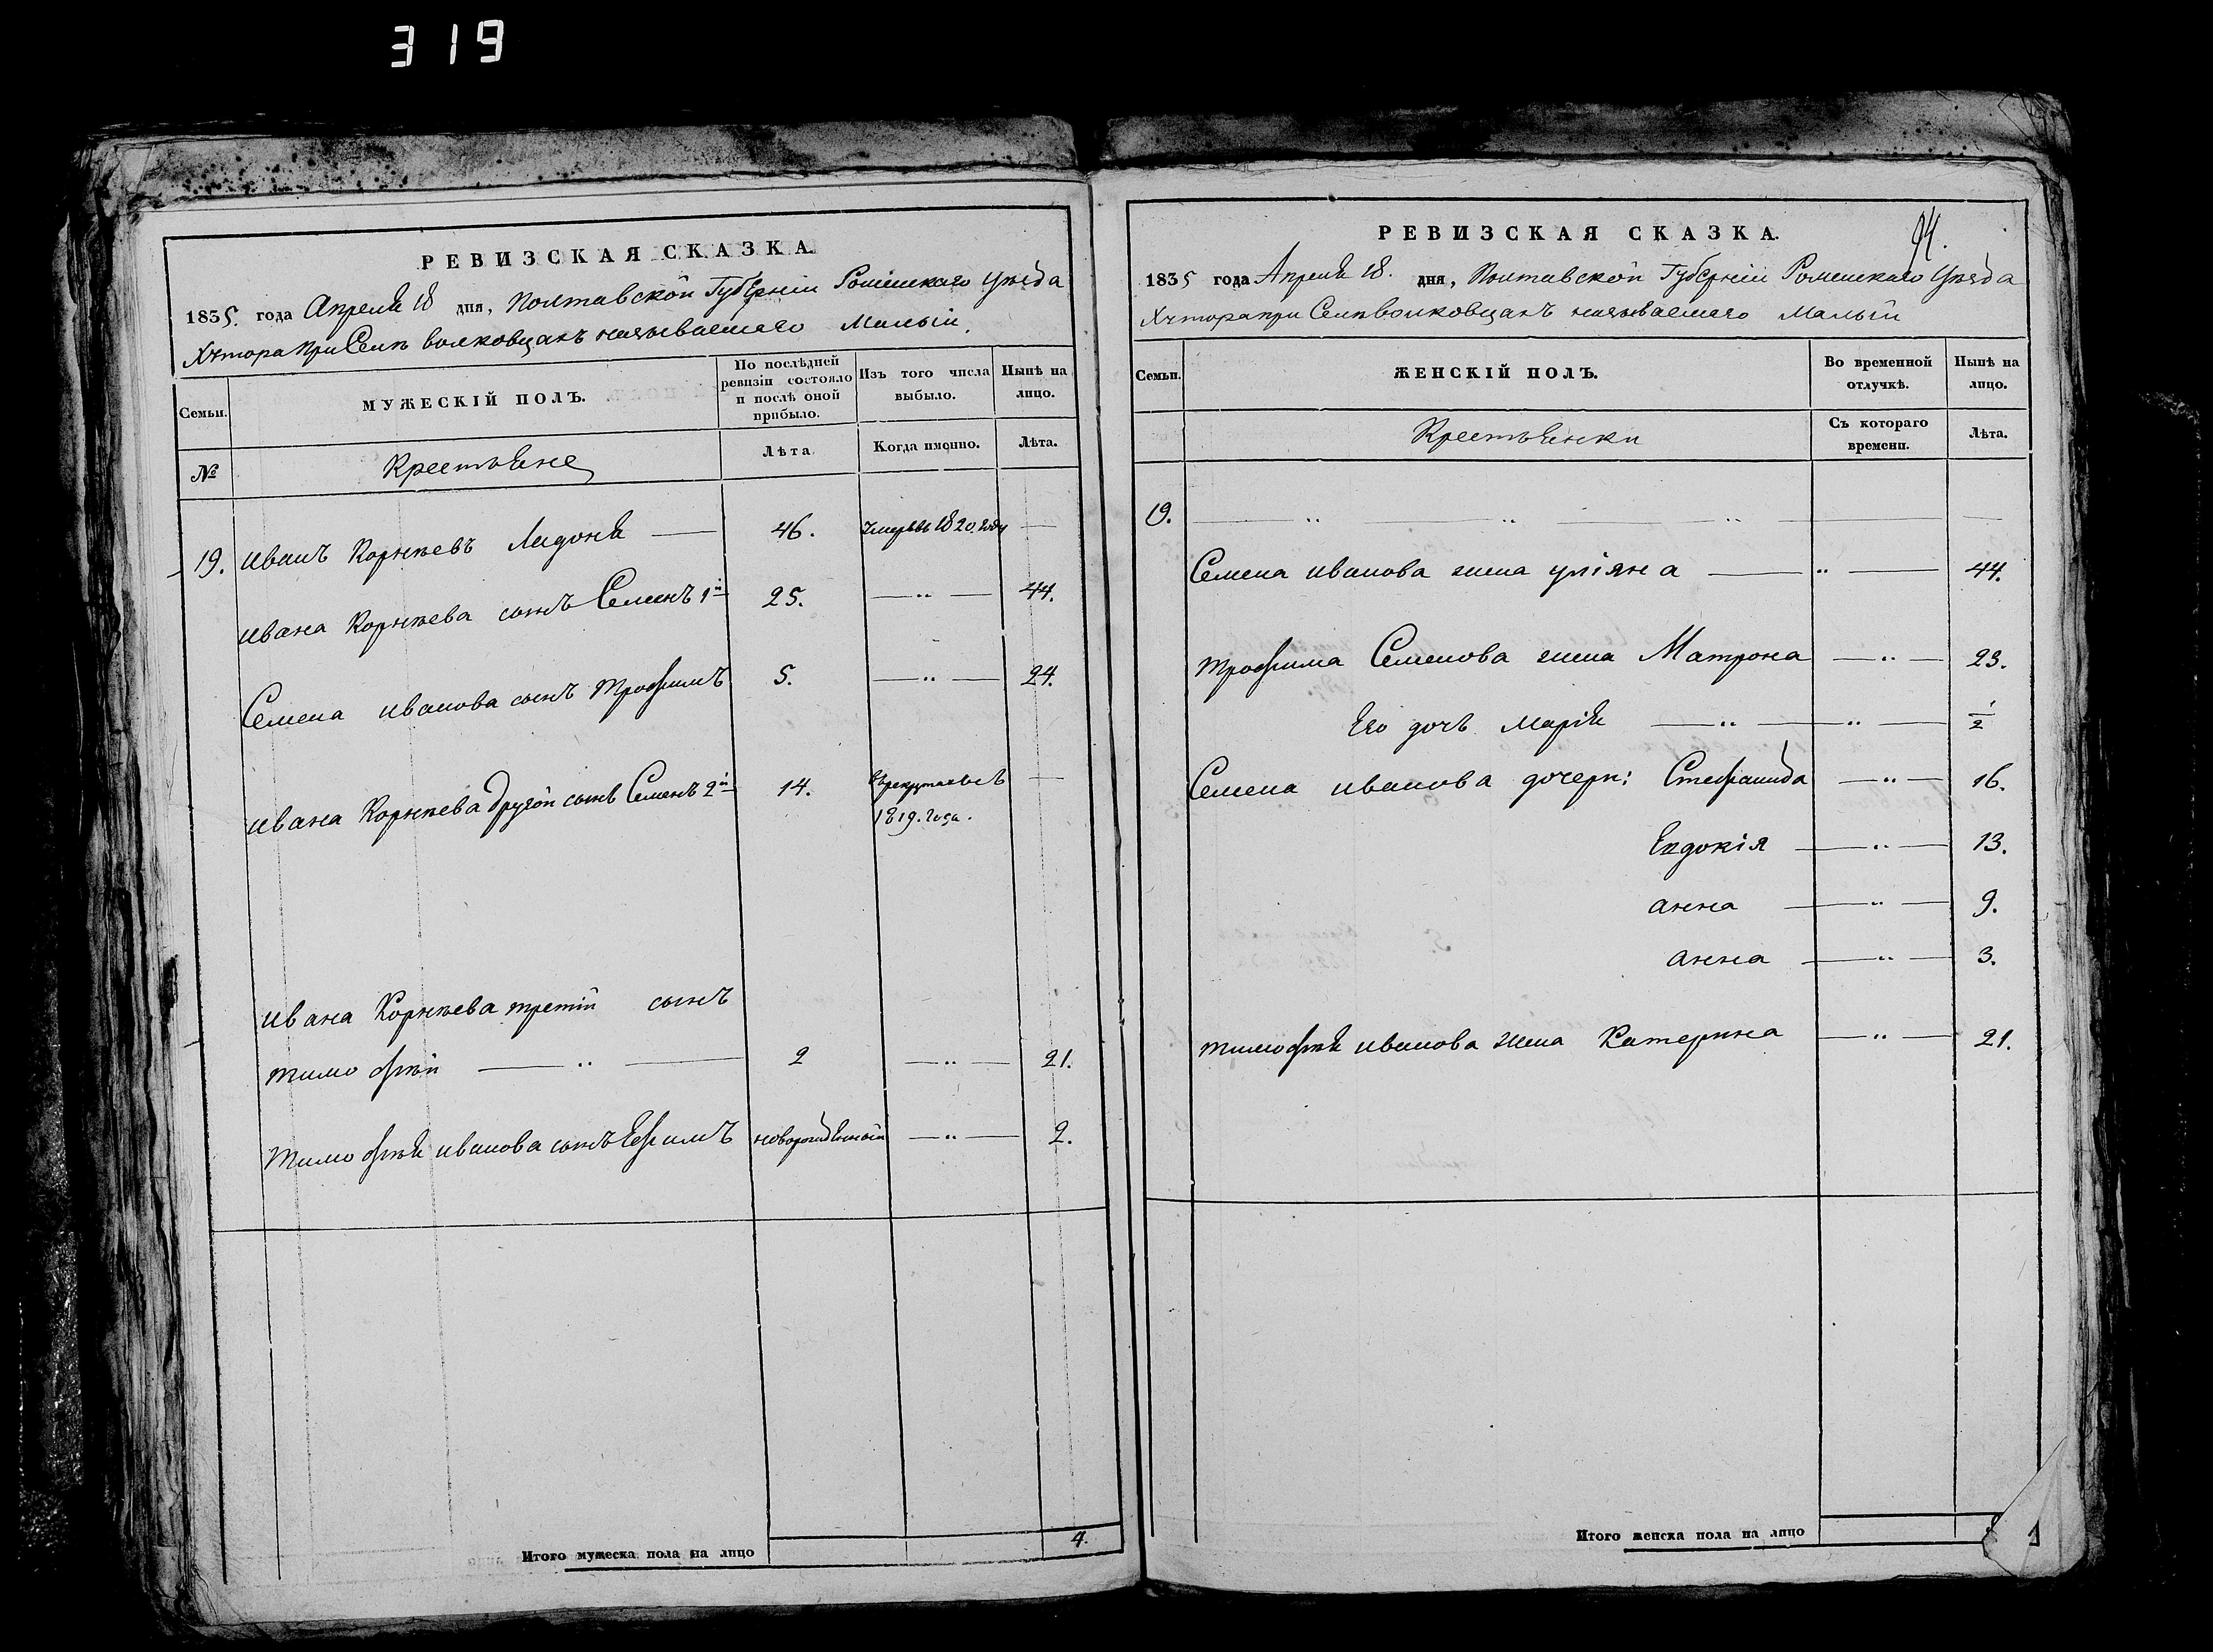 319
РЕВИЗСКАЯ СКАЗКА.
1835. года Апреля 18 дня, Полтавской Губерніи Роменскаго уѣзда
Хутора при Селѣ волковцахъ называемаго Малый.
Семьи.
МУЖЕСКІЙ ПОЛЪ.
По послѣдней ревизіи состояло и послѣ оной прибыло.
Изъ того числа выбыло.
Нынѣ на лицо.
№
Крестьяне
Лѣта.
Когда именно.
Лѣта.
19. иванъ Корнѣевъ Ладоня — 46. умеръ въ 1820. году —
ивана Корнѣева сынъ Семенъ 1й 25. — „ — 44.
Семена иванова сынъ трофимъ 5. — „ — 24.
ивана Корнѣева другой сынъ Семенъ 2й 14. въ рекрутахъ съ —
1819. года.
ивана Корнѣева третій сынъ
тимофѣй — „ — 2 — „ — 21.
тимофѣя иванова сынъ Ефимъ новорожденный — „ — 2.
Итого мужеска пола на лицо 4.
94.
РЕВИЗСКАЯ СКАЗКА.
1835 года Апреля 18. дня, Полтавской Губерніи Роменскаго уѣзда
Хутора при Селѣ волковцахъ называемаго Малый
Семьи.
ЖЕНСКІЙ ПОЛЪ.
Во временной отлучкѣ.
Нынѣ на лицо.
Крестьянки
Съ котораго времени.
Лѣта.
19. — „ — „ — „ — —
Семена иванова жена уліяна — „ — 44.
трофима Семенова жена Матрона — „ — 23.
Его дочь марія — „ — „ — 1/2
Семена иванова дочери: Стефанида — „ — 16.
Евдокія — „ — 13.
анна — „ — 9.
анна — „ — 3.
тимофѣя иванова жена Катерина — „ — 21.
Итого женска пола на лицо